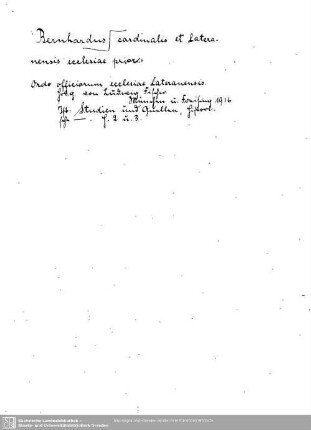 Bernhardus cardinalis et Latera-
nensis ecclesiae prior:
Ordo officiorum ecclesiae Lateranensis.
Hsg von Ludwig Fischer
München u. Freising 1916
Jn: Studien und Quellen, histor.
H. 2 u. 3.
Sächsische Landesbibliothek -
Staats- und Universitätsbibliothek Dresden